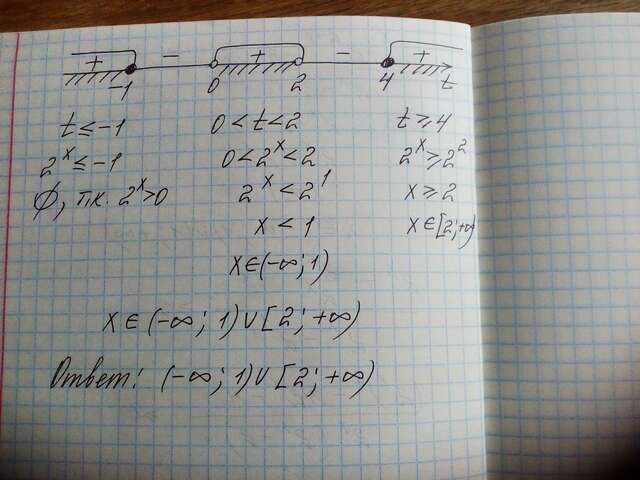 + − + − +
−1 0 2 4 t
t ≤ −1 0 < t < 2 t ≥ 4
2^x ≤ −1 0 < 2^x < 2 2^x ≥ 2^2
∅, т.к. 2^x > 0 2^x < 2^1 x ≥ 2
x < 1 x ∈ [2; +∞)
x ∈ (−∞; 1)
x ∈ (−∞; 1) ∪ [2; +∞)
Ответ: (−∞; 1) ∪ [2; +∞)